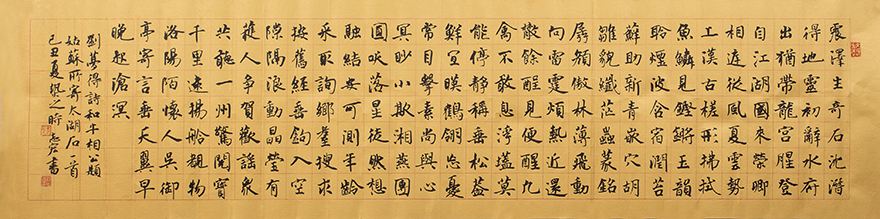 震澤生奇石沈潛
得地靈初辭水府
出猶帶龍宮腥發
自江湖國來榮卿
相庭從風夏雲勢
上漢古槎形拂拭
魚鱗見鏗鏘玉韻
聆煙波含宿潤苔
蘚助新青嵌穴胡
雛貌纖茫蟲篆銘
孱顏傲林薄飛動
向雷霆煩熱近還
散餘酲見便醒凡
禽不敢息浮壒莫
能停靜稱垂松蓋
鮮宜映鶴翎忘憂
常目擊素尚與心
冥眇小欺湘燕團
圓笑落星徒然想
融結安可測年齡
采取詢鄉耋搜求
按舊經垂鉤入空
隙隔浪動晶瑩有
獲人爭賀歡謠眾
共聽一州驚閱寶
千里遠揚舲覩物
洛陽陌懷人吳御
亭寄言垂天翼早
晚起滄溟
劉夢得詩和牛相公題
姑蘇所寄太湖石一首
己丑夏之時書